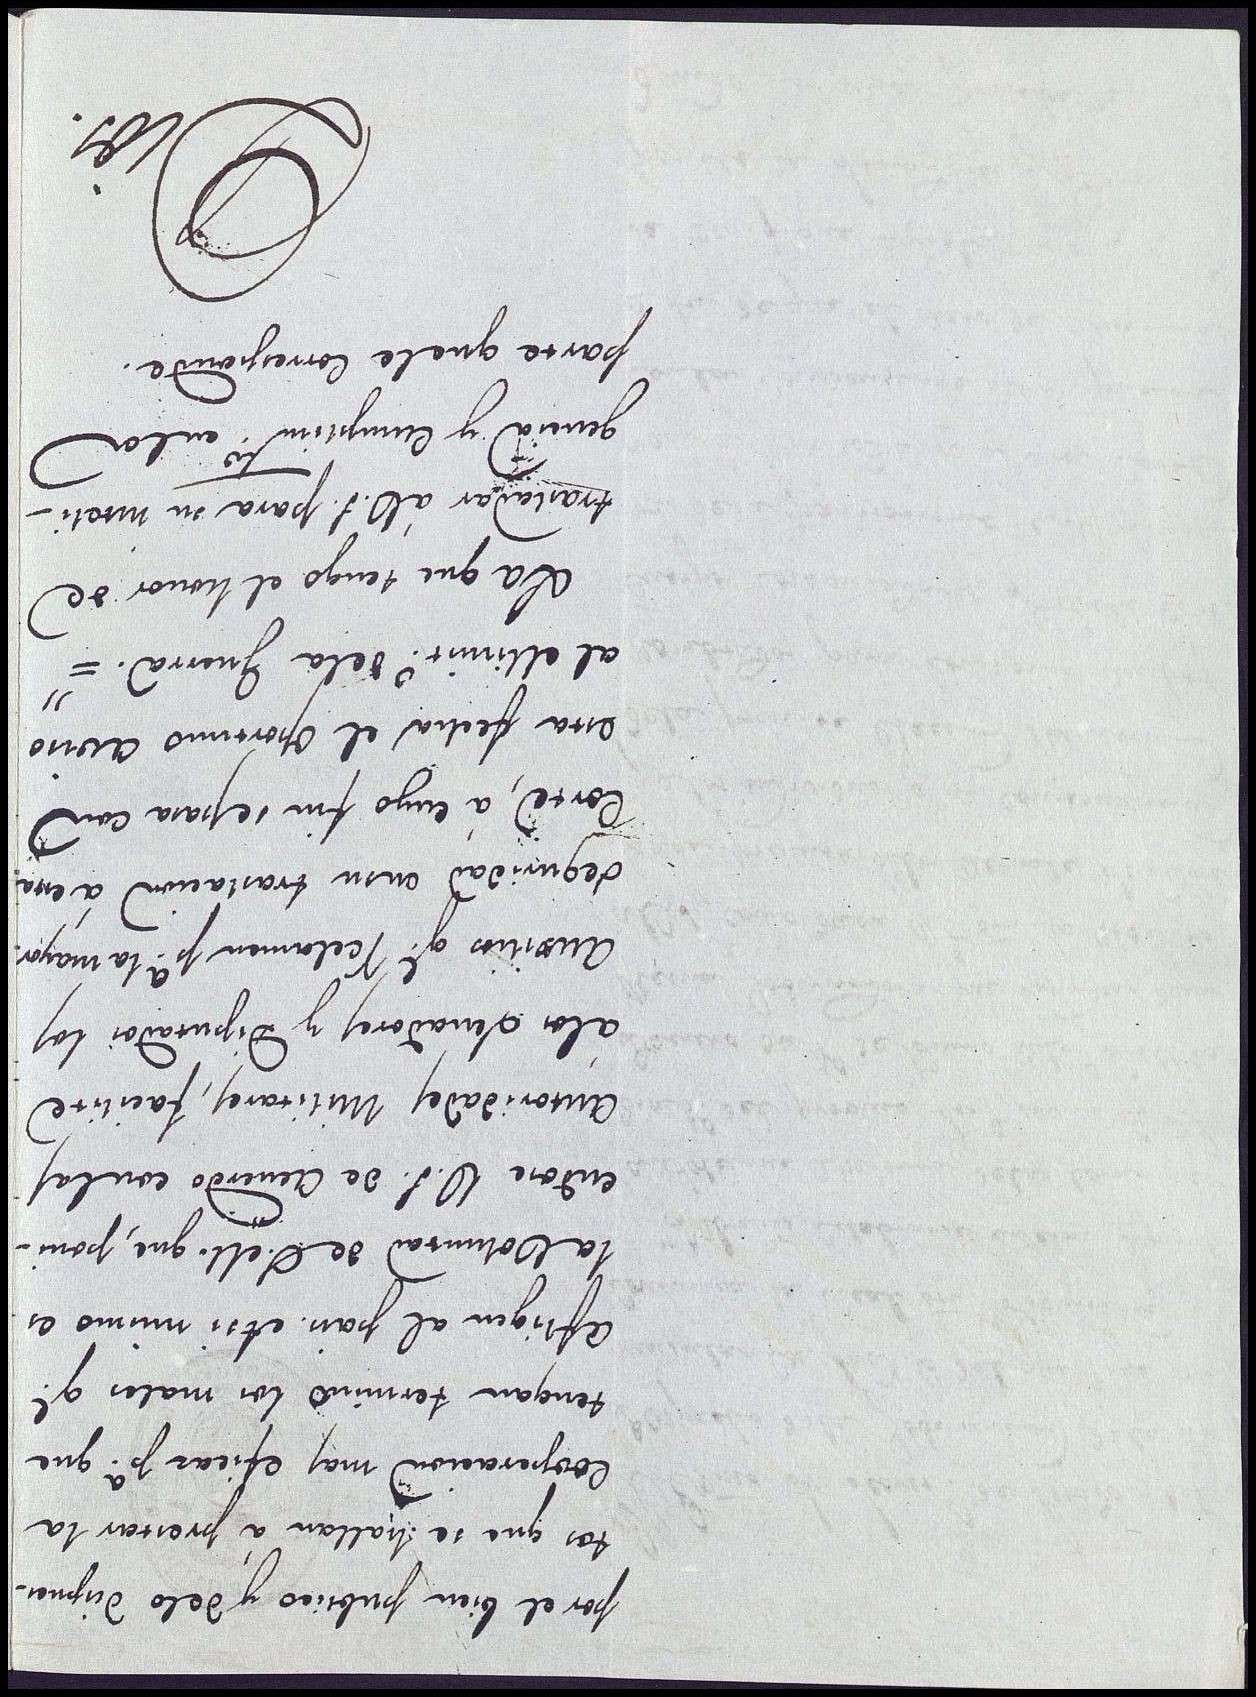 por el bien publico y delo dispues-
tos que se hallan á prestar la
Cooperacion mas eficaz p.ª que
tengan termino los males q.e
afligen al pais. Asi mismo es
la Voluntad de S.M. que, poni-
endose V.S. de acuerdo conlas
Autoridades Militares, facilite
alos Senadores y Diputados los
Auxilios q.e reclamen p.ª la mayor
seguridad ensu traslacion á esta
Corte, á cuyo fin sepasa con
esta fecha el oportuno aviso
al Minist.º dela Guerra. =
La que tengo el honor de
trasladar áV.S. para su inteli-
gencia y cumplim.to enla
parte quele corresponde.